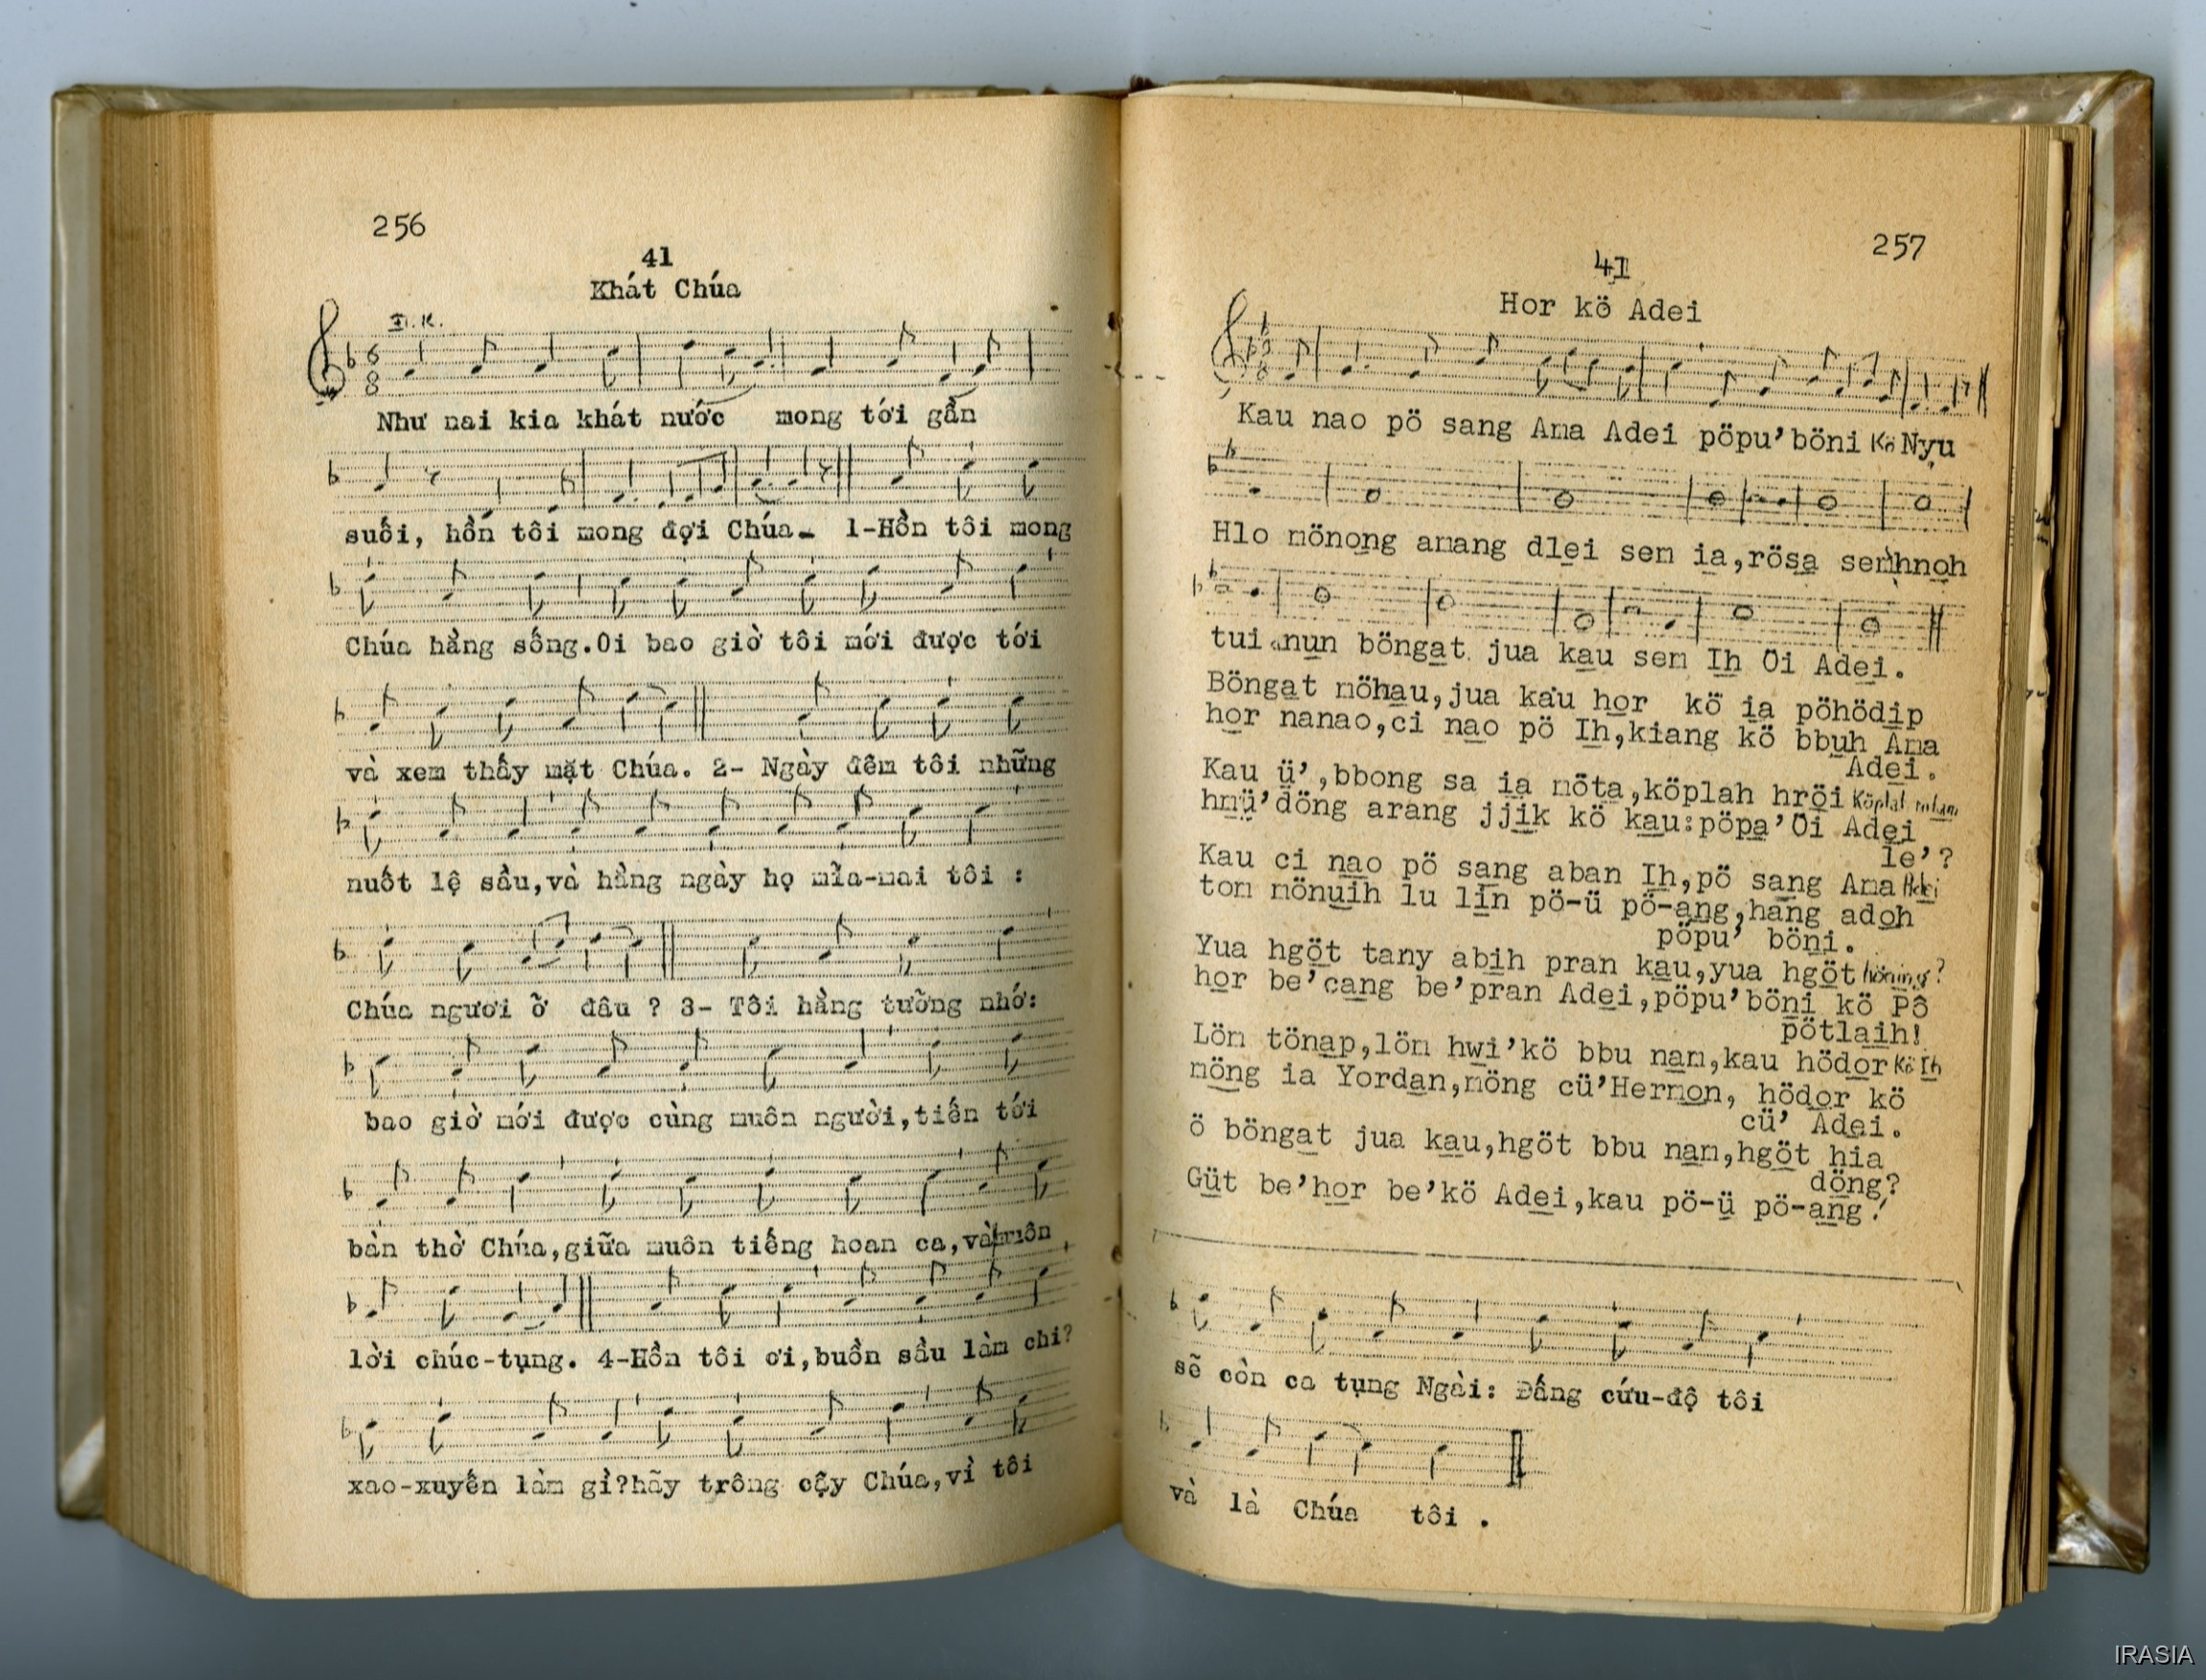 256
41
Khát Chúa
Như nai kia khát nước mong tới gần
suối, hồn tôi mong đợi Chúa. 1-Hồn tôi mong
Chúa hằng sống.Ôi bao giờ tôi mới được tới
và xem thấy mặt Chúa. 2- Ngày đêm tôi những
nuốt lệ sầu,và hằng ngày họ mỉa-mai tôi :
Chúa ngươi ở đâu ? 3- Tôi hằng tưởng nhớ:
bao giờ mới được cùng muôn người,tiến tới
bàn thờ Chúa,giữa muôn tiếng hoan ca,và muôn
lời chúc-tụng. 4-Hồn tôi ơi,buồn sầu làm chi?
xao-xuyến làm gì?hãy trông cậy Chúa,vì tôi
257
41
Hor kö Adei
Kau nao pö sang Ama Adei pöpu'böni Kö Nyu
Hlo mönong amang dlei sem ia,rösa semhnoh
tui anun böngat jua kau sem Ih Oi Adei.
Böngat möhau,jua kau hor kö ia pöhödip
hor nanao,ci nao pö Ih,kiang kö bbuh Ama
Adei.
Kau ü',bbong sa ia möta,köplah hröi Köplah mlam
hmü'döng arang jjik kö kau:pöpa'Oi Adei
le'?
Kau ci nao pö sang aban Ih,pö sang Ama Adei
tom mönuih lu lin pö-ü pö-ang,hang adoh
pöpu' böni.
Yua hgöt tany abih pran kau,yua hgöt höning?
hor be'cang be'pran Adei,pöpu'böni kö Pô
pötlaih!
Löm tönap,löm hwi'kö bbu nam,kau hödor Kö Ih
möng ia Yordan,möng cü'Hermon, hödor kö
cü' Adei.
ö böngat jua kau,hgöt bbu nam,hgöt hia
döng?
Güt be'hor be'kö Adei,kau pö-ü pö-ang!
sẽ còn ca tụng Ngài: Đấng cứu-độ tôi
và là Chúa tôi .
IRASIA